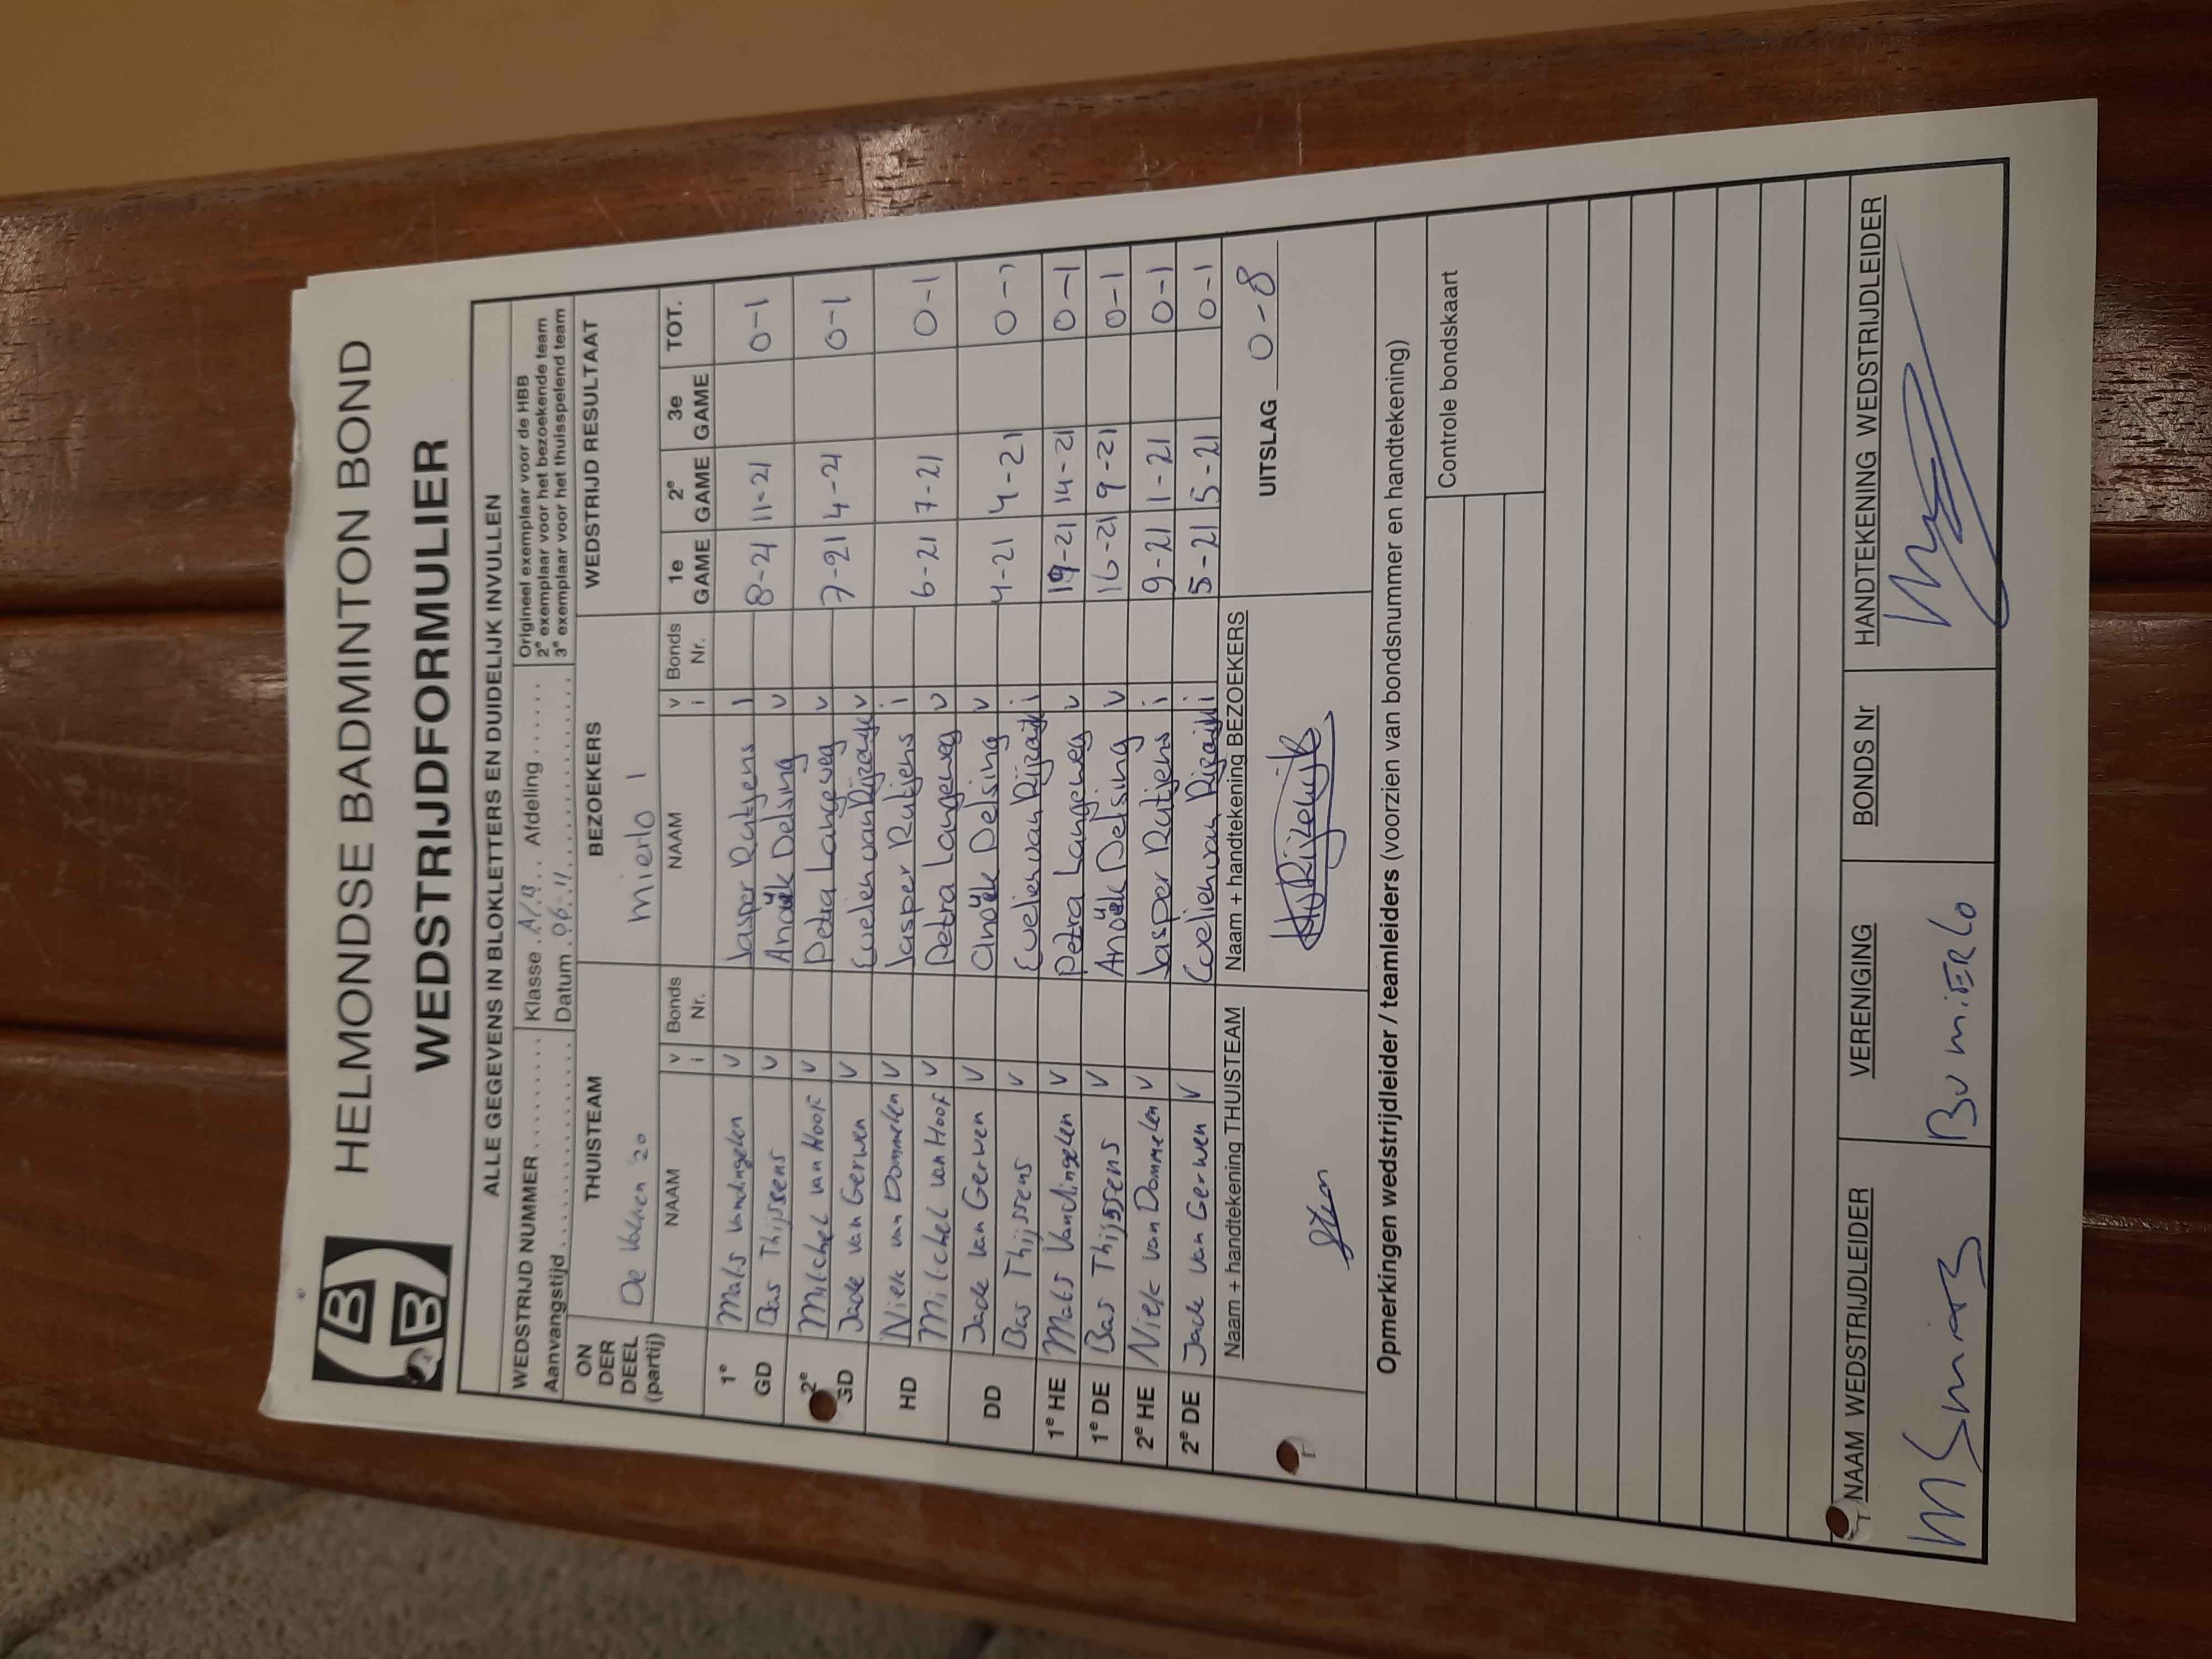 HELMONDSE BADMINTON BOND
WEDSTRIJDFORMULIER
ALLE GEGEVENS IN BLOKLETTERS EN DUIDELIJK INVULLEN
WEDSTRIJD NUMMER ......... Klasse . A/B . . Afdeling ......
Aanvangstijd ............... Datum . 06-11 ...............
Origineel exemplaar voor de HBB
2e exemplaar voor het bezoekende team
3e exemplaar voor het thuisspelend team
ON DER DEEL (partij) THUISTEAM BEZOEKERS WEDSTRIJD RESULTAAT
De Valken '20 Mierlo 1
NAAM v i Bonds Nr. NAAM v i Bonds Nr. 1e GAME 2e GAME 3e GAME TOT.
1e GD Mats Vandingelen v Jasper Rutjens I 8-21 11-21 0-1
Bas Thijssens v Anoëk Delsing v
2e GD Michel van Hoof v Petra Langeweg v 7-21 4-21 0-1
Jade van Gerwen v Evelien van Rijzewijk v
HD Niek van Dommelen v Jasper Rutjens i 6-21 7-21 0-1
Michel van Hoof v Petra Langeweg v
DD Jade van Gerwen v Anoëk Delsing v 4-21 4-21 0-1
Bas Thijssens v Evelien van i
1e HE Mats Vandingelen v Petra Langeweg v 19-21 14-21 0-1
1e DE Bas Thijssens v Anoëk Delsing v 16-21 9-21 0-1
2e HE Niek van Dommelen v Jasper Rutjens i 9-21 1-21 0-1
2e DE Jade van Gerwen v Evelien van i 5-21 5-21 0-1
Naam + handtekening THUISTEAM Naam + handtekening BEZOEKERS UITSLAG 0-8
Opmerkingen wedstrijdleider / teamleiders (voorzien van bondsnummer en handtekening)
Controle bondskaart
NAAM WEDSTRIJDLEIDER VERENIGING BONDS Nr HANDTEKENING WEDSTRIJDLEIDER
M Smits BV MIERLO